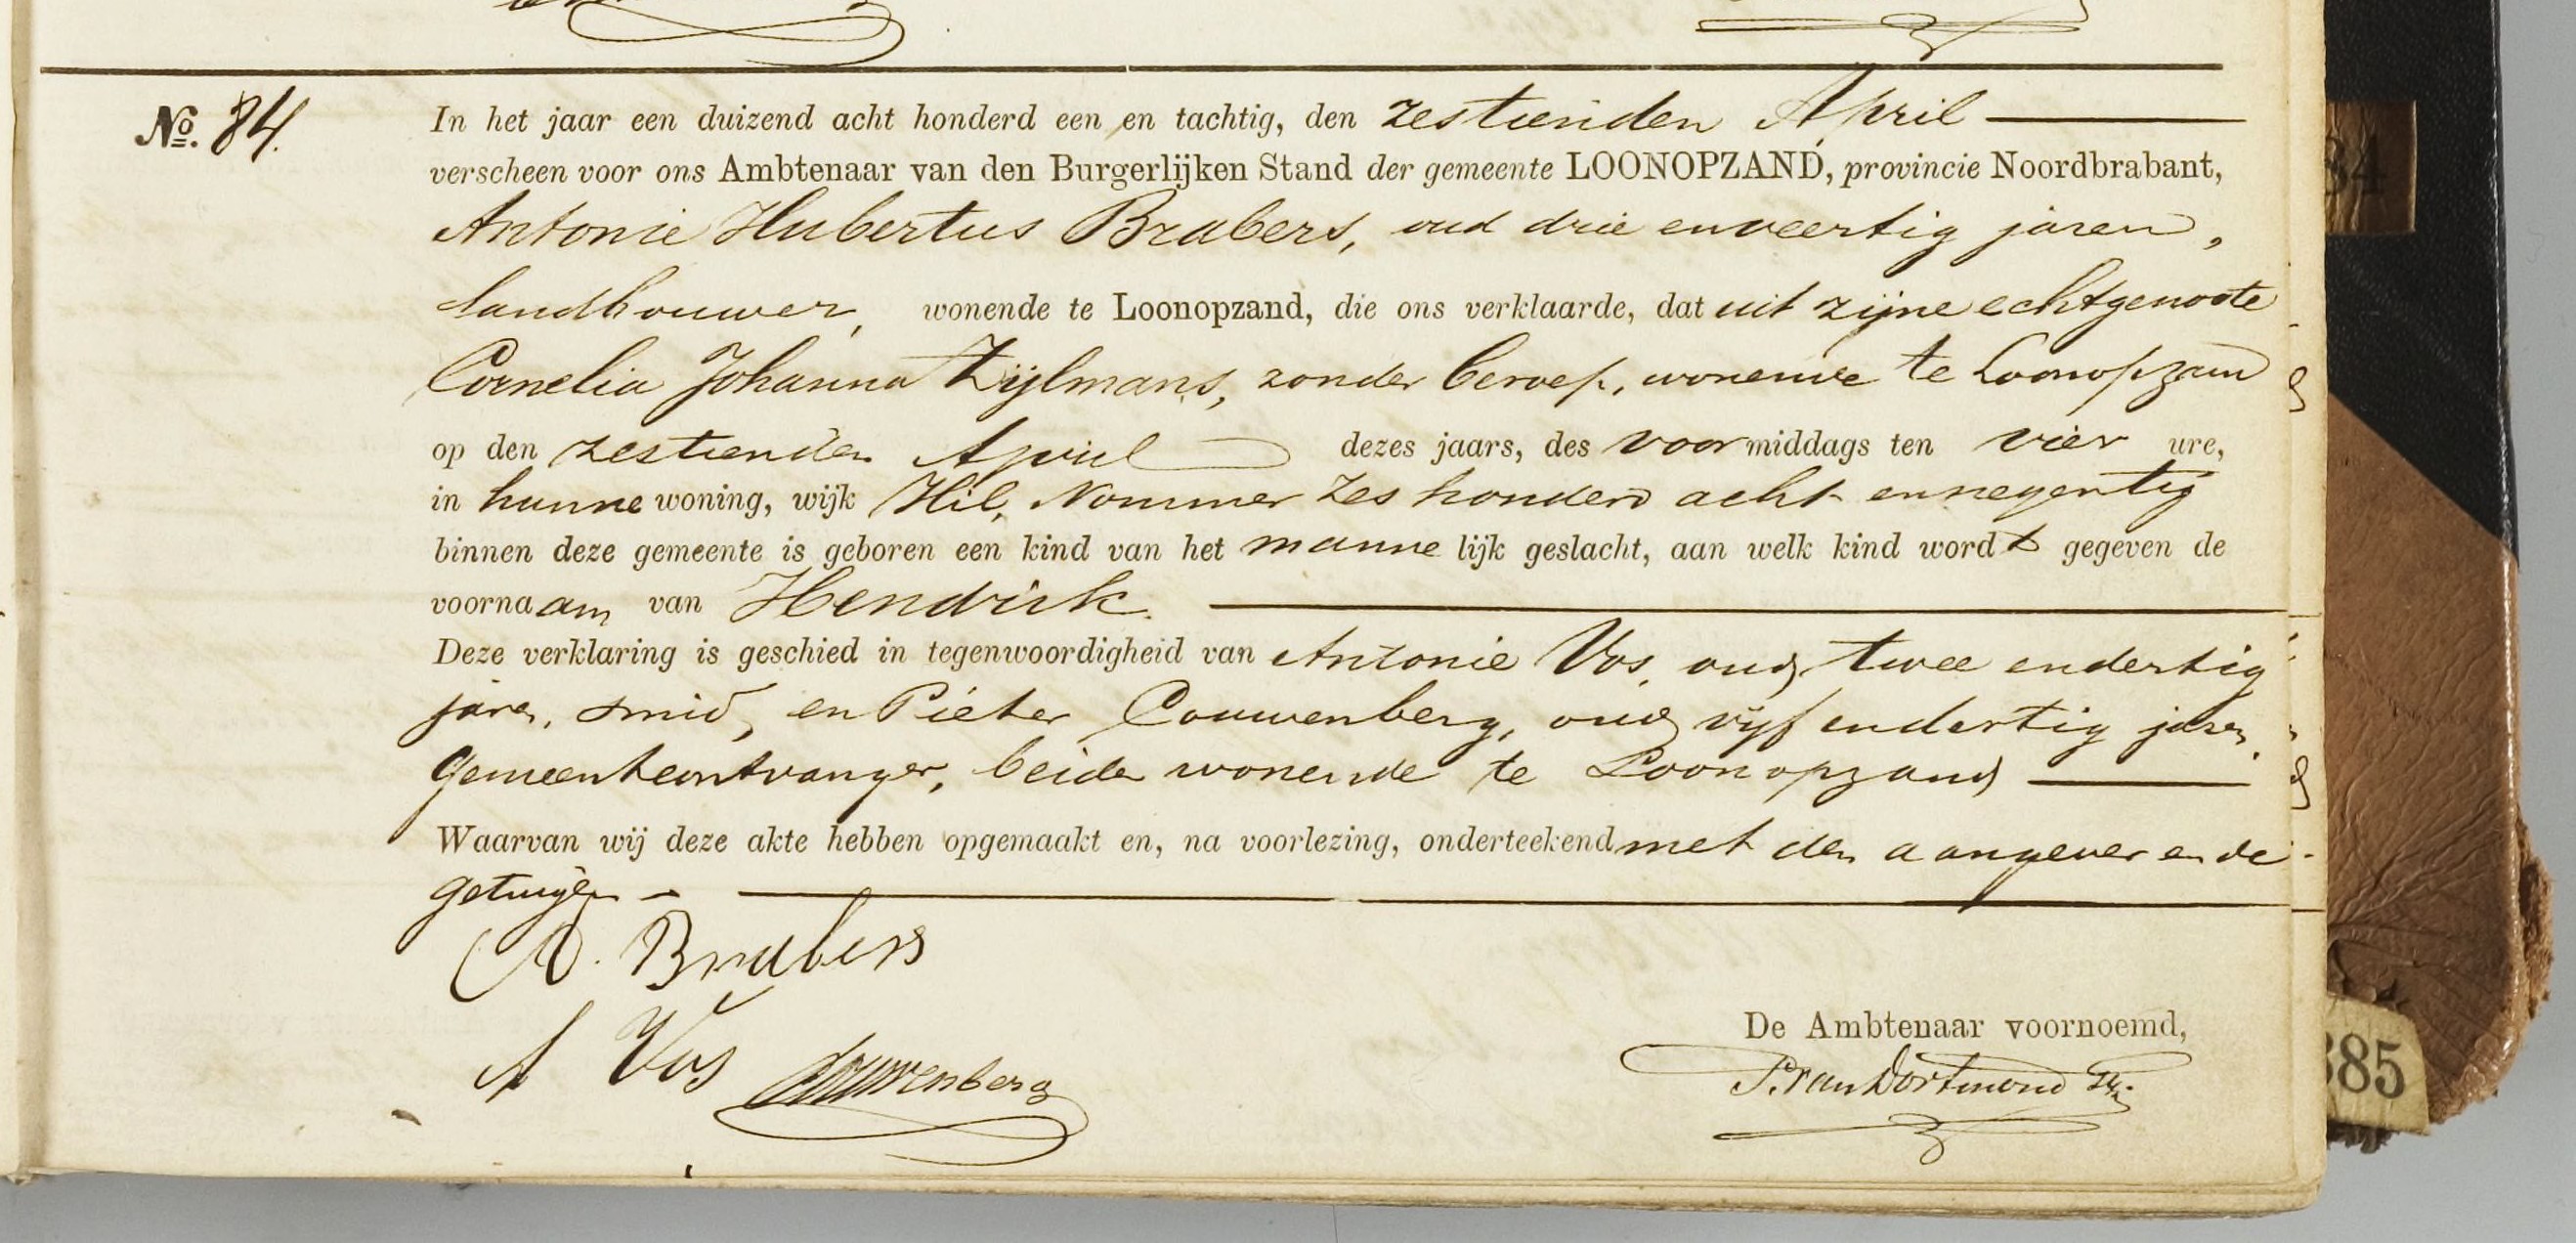 No. 84.
In het jaar een duizend acht honderd een en tachtig, den zestienden April
verscheen voor ons Ambtenaar van den Burgerlijken Stand der gemeente LOONOPZAND, provincie Noordbrabant,
Antonie Hubertus Brabers, oud drie en veertig jaren,
landbouwer, wonende te Loonopzand, die ons verklaarde, dat uit zijne echtgenoote
Cornelia Johanna Zijlmans, zonder beroep, wonende te Loonopzand
op den zestienden April dezes jaars, des voormiddags ten vier ure,
in hunne woning, wijk Hil, Nommer zes honderd acht en negentig
binnen deze gemeente is geboren een kind van het mannelijk geslacht, aan welk kind wordt gegeven de
voornaam van Hendrik.
Deze verklaring is geschied in tegenwoordigheid van Antonie Vos, oud twee en dertig
jaren, smid, en Pieter Couwenberg, oud vijf en dertig jaren,
gemeenteontvanger, beiden wonende te Loonopzand
Waarvan wij deze akte hebben opgemaakt en, na voorlezing, onderteekend met den aangever en de
getuigen
A. Brabers
A Vos Couwenberg
De Ambtenaar voornoemd,
P. van Dortmond
84
385